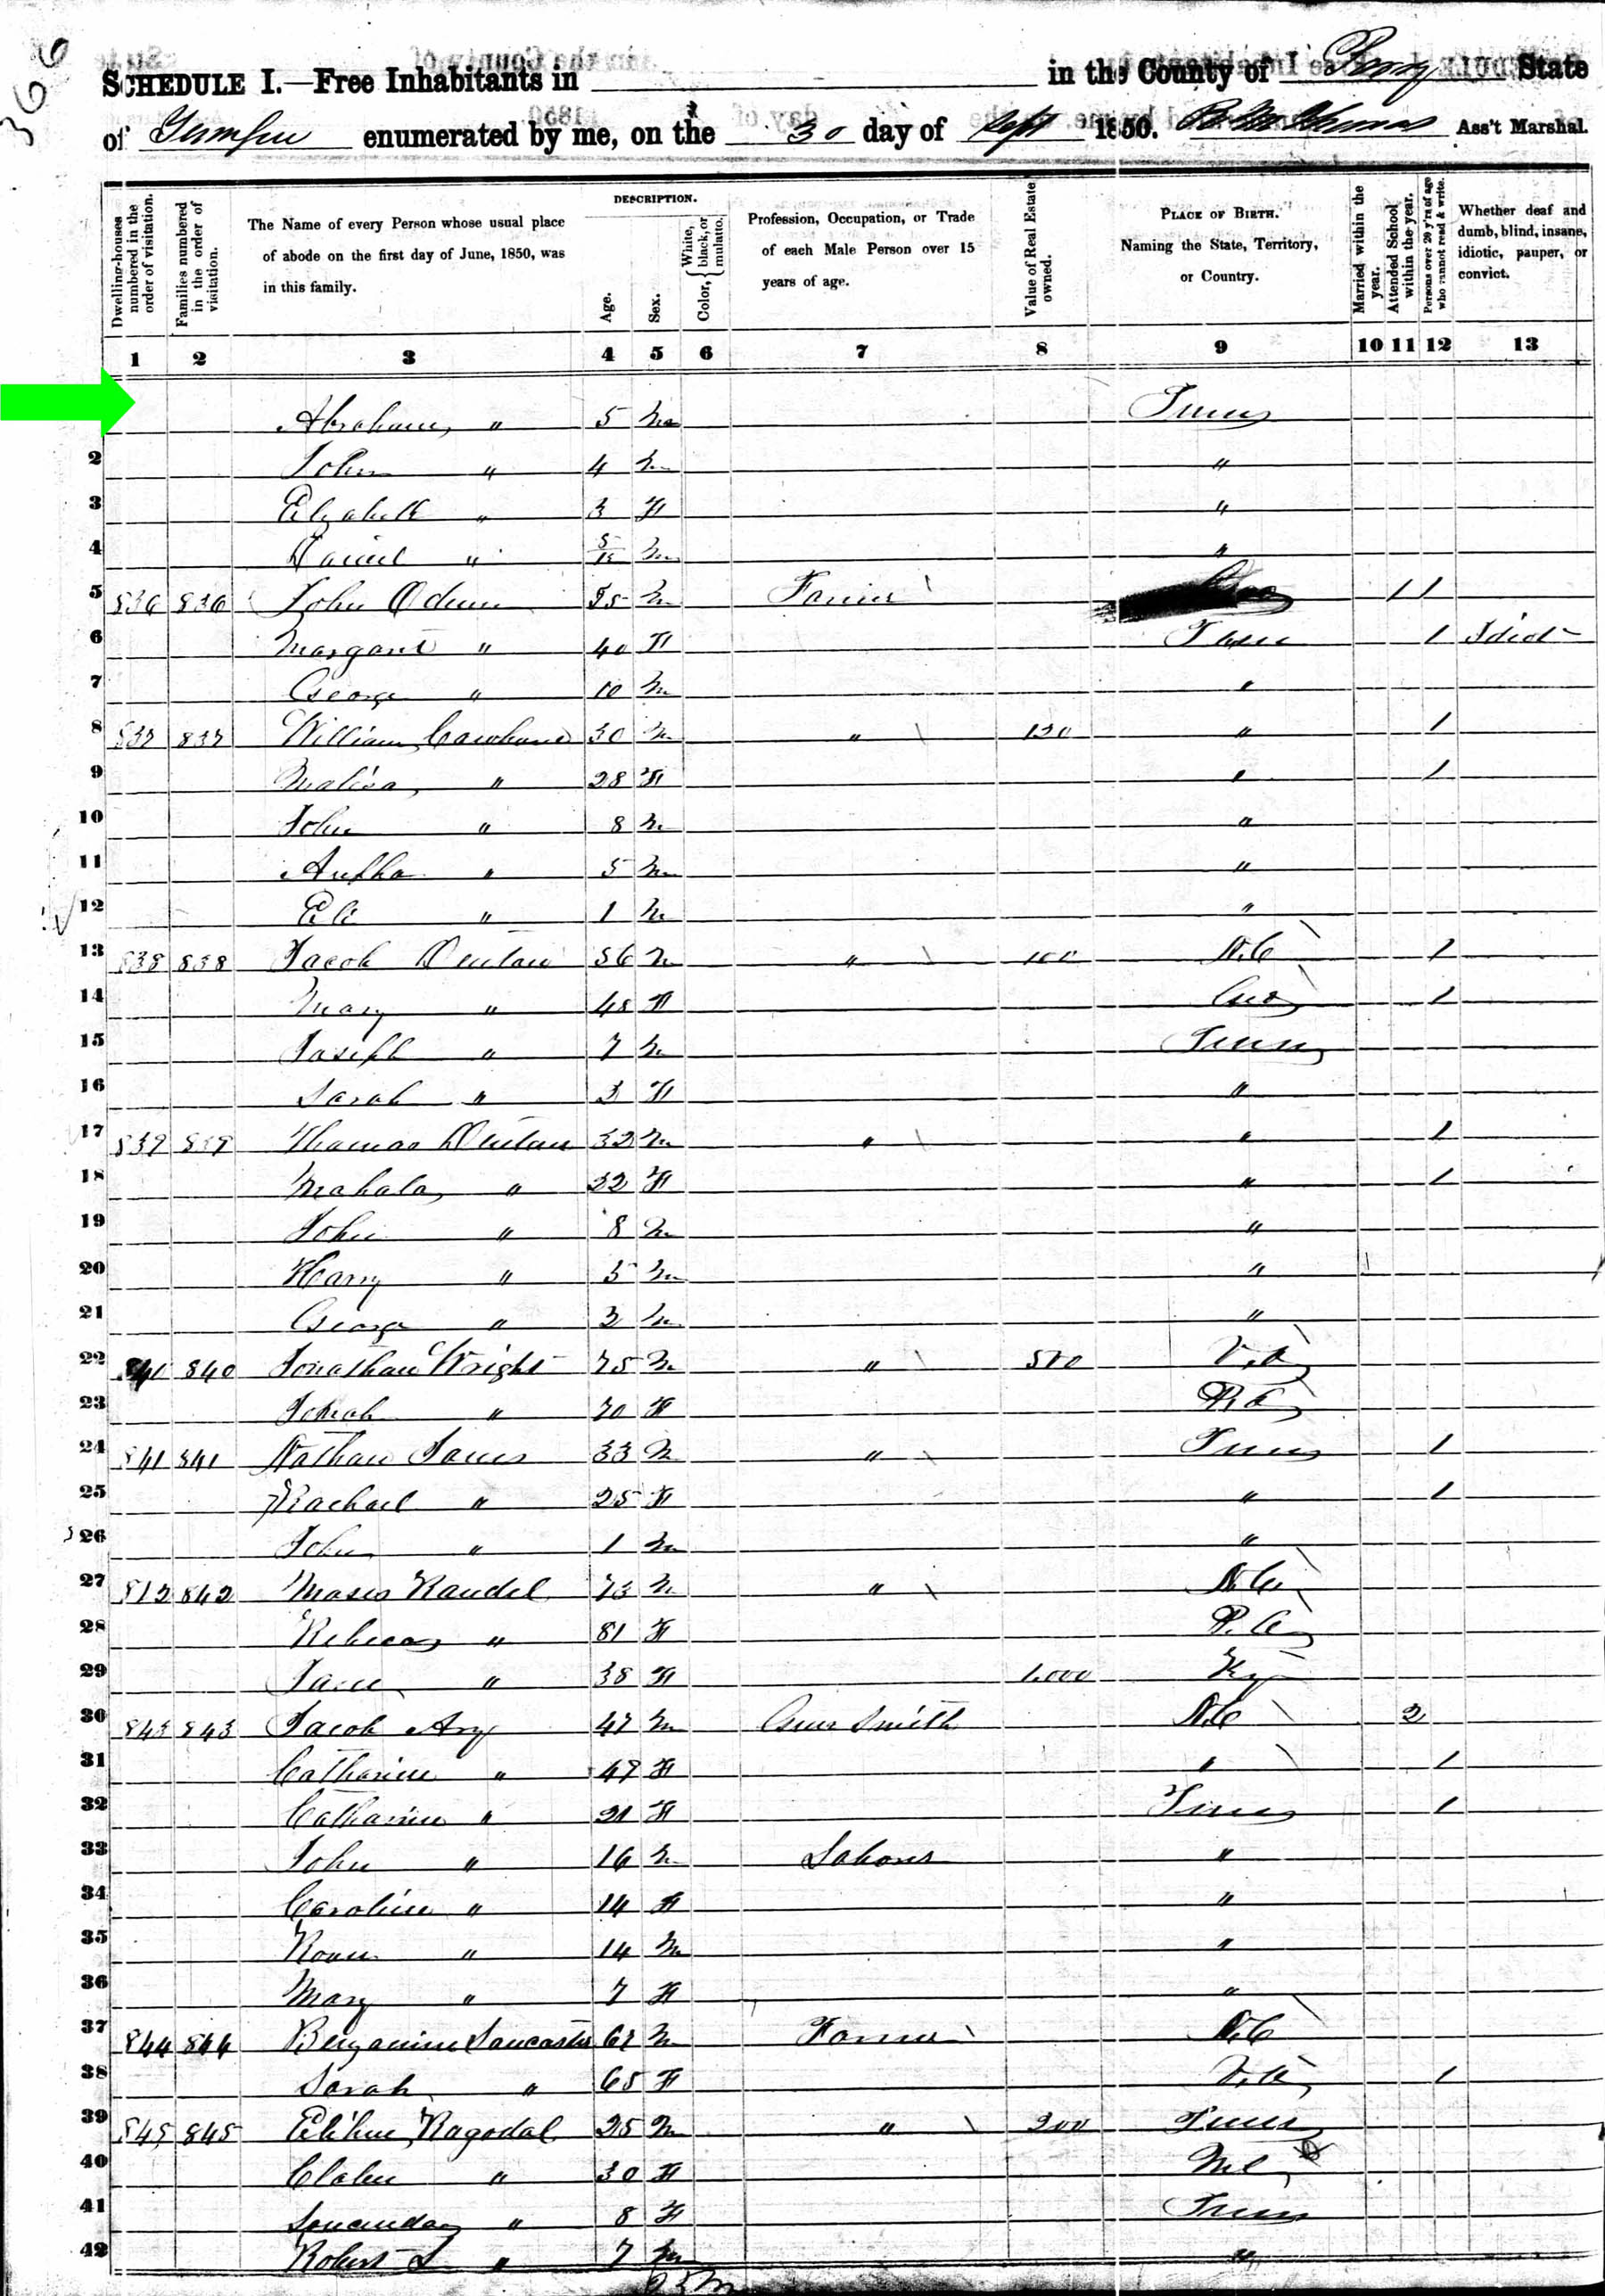 366
SCHEDULE I.—Free Inhabitants in in the County of Perry State
of enumerated by me, on the 30 day of Sept 1850. Ass't Marshal.
Dwelling-houses numbered in the order of visitation.
Families numbered in the order of visitation.
The Name of every Person whose usual place of abode on the first day of June, 1850, was in this family.
DESCRIPTION.
Age.
Sex.
Color, { White, black, or mulatto.
Profession, Occupation, or Trade of each Male Person over 15 years of age.
Value of Real Estate owned.
PLACE OF BIRTH.
Naming the State, Territory, or Country.
Married within the year.
Attended School within the year.
Persons over 20 y'rs of age who cannot read & write.
Whether deaf and dumb, blind, insane, idiotic, pauper, or convict.
1 2 3 4 5 6 7 8 9 10 11 12 13
Abraham " 5 m Tenn
2 John " 4 m "
3 Elizabeth " 3 F "
4 Daniel " 5/12 m "
5 836 836 John Odum 55 m Farmer 1 1
6 Margaret " 40 F Tenn 1 Idiot
7 George " 10 m "
8 837 837 William 30 m " "  1
9 Malisa " 28 F " 1
10 John " 8 m "
11 " 5 m "
12 Eli " 1 m "
13 838 838 Jacob Denton 56 m " 100 N.C 1
14 Mary " 48 F Geo 1
15 Joseph " 7 m Tenn
16 Sarah " 3 F "
17 839 839 Thomas Denton 32 m " " 1
18 Mahala " 22 F " 1
19 John " 8 m "
20 Henry " 5 m "
21 George " 3 m "
22 840 840 Jonathan Wright 75 m " 500 V.A
23 " 70 F
24 841 841 Nathan Jones 33 m " Tenn 1
25 Rachael " 25 F " 1
26 John " 1 m "
27 842 842 Moses Randel 73 m " N.C
28 Rebeca " 81 F P.A
29 Jane " 38 F 1,000 Ky
30 843 843 Jacob Ary 47 m Gun Smith N.C 2
31 Catharine " 47 F " 1
32 Catharine " 21 F Tenn 1
33 John " 16 m Laborer "
34 Caroline " 14 F "
35 " 14 m "
36 Mary " 7 F "
37 844 844 Benjamine Lancaster 67 m Farmer N.C
38 Sarah " 65 F V.A 1
39 845 845 Elihu Ragsdal 25 m " 200 Tenn
40 " 30 F
41 " 8 F Tenn
42 Robert L " 7 m "